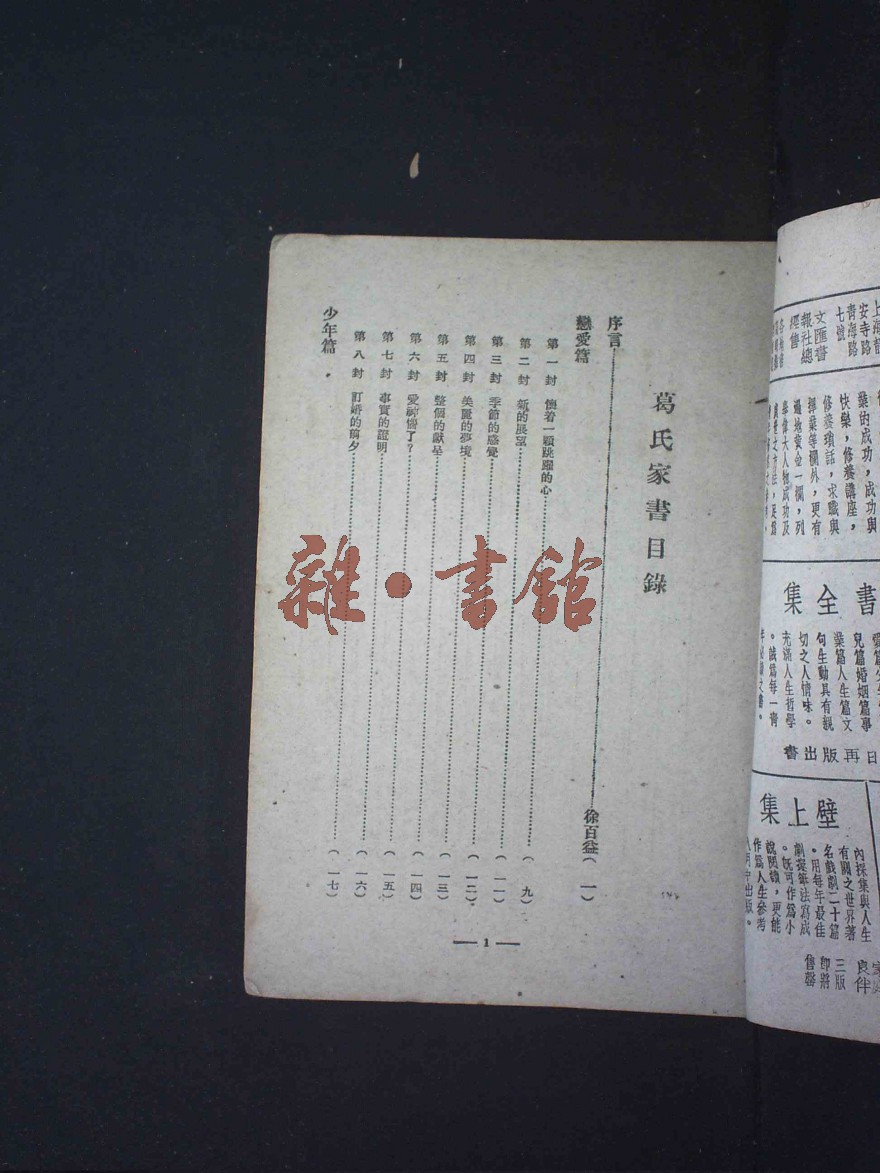 上海靜
安寺路
青海路
七號
文匯書
報社總
經售
的成功，成功與
快樂，修養講座，
修養瑣話，求職與
擇業等欄外，更有
遍地黃金一欄，列
舉偉大人物成功及
書全集
兒篇婚姻篇事
業篇人生篇文
句生動具有親
切之人情味。
充滿人生哲學
。誠為每一青
日再版出書
壁上集
內採集與人生
有關之世界著
名戲劇二十篇
。用每年最佳
劇提筆法寫成
。既可作為小
說閱讀，更能
作為人生參考
出版。
良伴
三版
即將
售罄
葛氏家書目錄
序言……徐百益(一)
戀愛篇
第一封 懷着一顆跳躍的心……(九)
第二封 新的展望……(一一)
第三封 季節的感覺……(一二)
第四封 美麗的夢境……(一三)
第五封 整個的獻呈……(一四)
第六封 愛神惱了？……(一五)
第七封 事實的證明……(一六)
第八封 訂婚的前夕……(一七)
少年篇
— 1 —
雜·書館